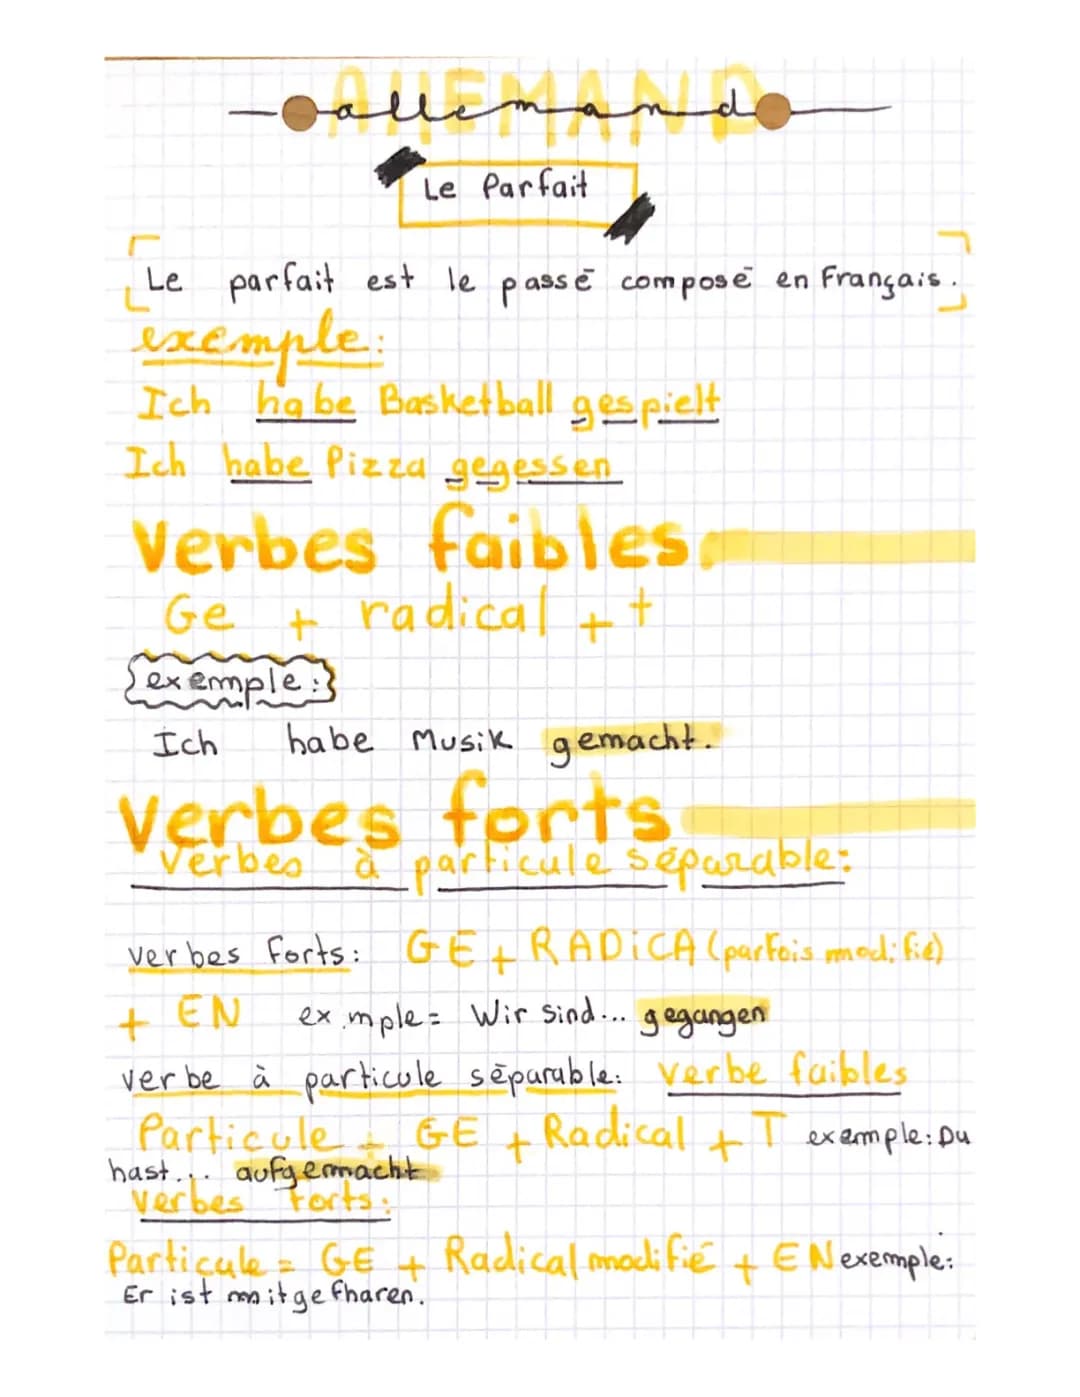 ALLEMAND
allemand
Le Parfait
Le parfait est le passé composé en Français.
exemple:
Ich habe Basketball gespielt
Ich habe Pizza gegessen
Verbes faibles
Ge + radical + t
exemple:
Ich habe Musik gemacht.
Verbes forts
Verbes à particule séparable:
verbes forts: GE + RADiCA (parfois modifié)
+ EN ex mple = Wir sind... gegangen
verbe à particule séparable: verbe faibles
Particule + GE + Radical + T exemple: Du
hast... aufgemacht
verbes forts:
Particule = GE + Radical modifié + EN exemple:
Er ist mitgefharen.